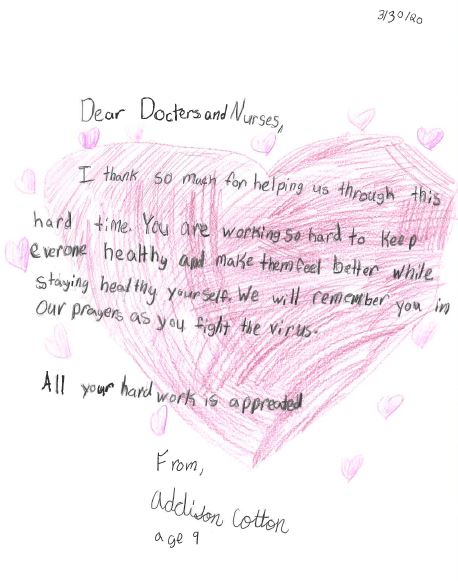 3/30/20
Dear Docters and Nurses,
I thank so much for helping us through this
hard time. You are working so hard to keep
everone healthy and make them feel better while
staying healthy yourself. We will remember you in
our prayers as you fight the virus.
All your hard work is appreated
From,
Addison Cotton
age 9